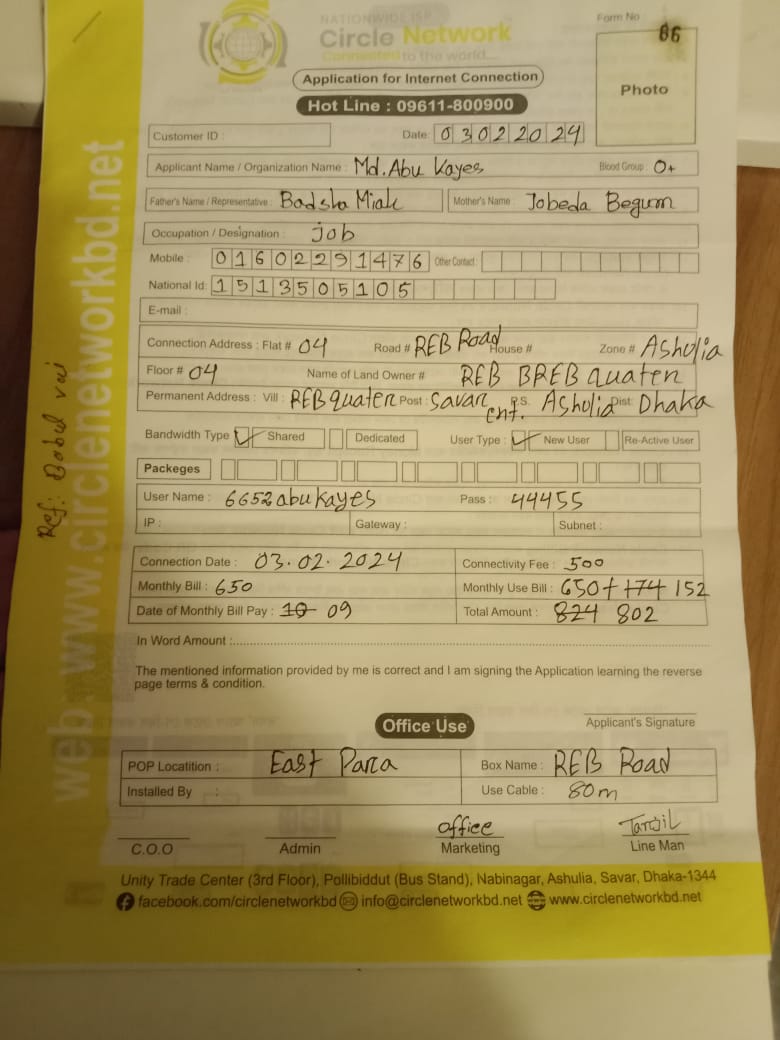 NATIONWIDE ISP
Circle Network
Connected to the world...
Form No
86
Photo
Application for Internet Connection
Hot Line : 09611-800900
Customer ID :
Date: 03022024
Applicant Name / Organization Name : Md. Abu Kayes Blood Group : O+
Father's Name / Representative : Badsha Miah Mother's Name : Jobeda Begum
Occupation / Designation : job
Mobile : 01602291476 Other Contact :
National Id: 1513505105
E-mail :
Connection Address : Flat # 04 Road # REB Road House # Zone # Ashulia
Floor # 04 Name of Land Owner # REB BREB quaten
Permanent Address : Vill : REB quaten Post : Savar cnt. P.S. Ashulia Dist: Dhaka
Bandwidth Type Shared Dedicated User Type : New User Re-Active User
Packeges
User Name : 6652abukayes Pass : 44455
IP : Gateway : Subnet :
Connection Date : 03.02.2024 Connectivity Fee : 500
Monthly Bill : 650 Monthly Use Bill : 650+ 174 152
Date of Monthly Bill Pay : 10 09 Total Amount : 824 802
In Word Amount :
The mentioned information provided by me is correct and I am signing the Application learning the reverse
page terms & condition.
Applicant's Signature
Office Use
POP Locatition : East Para Box Name : REB Road
Installed By : Use Cable : 80m
office Tanjil
C.O.O Admin Marketing Line Man
Unity Trade Center (3rd Floor), Pollibiddut (Bus Stand), Nabinagar, Ashulia, Savar, Dhaka-1344
facebook.com/circlenetworkbd info@circlenetworkbd.net www.circlenetworkbd.net
web: www.circlenetworkbd.net
Ref: Babul vai